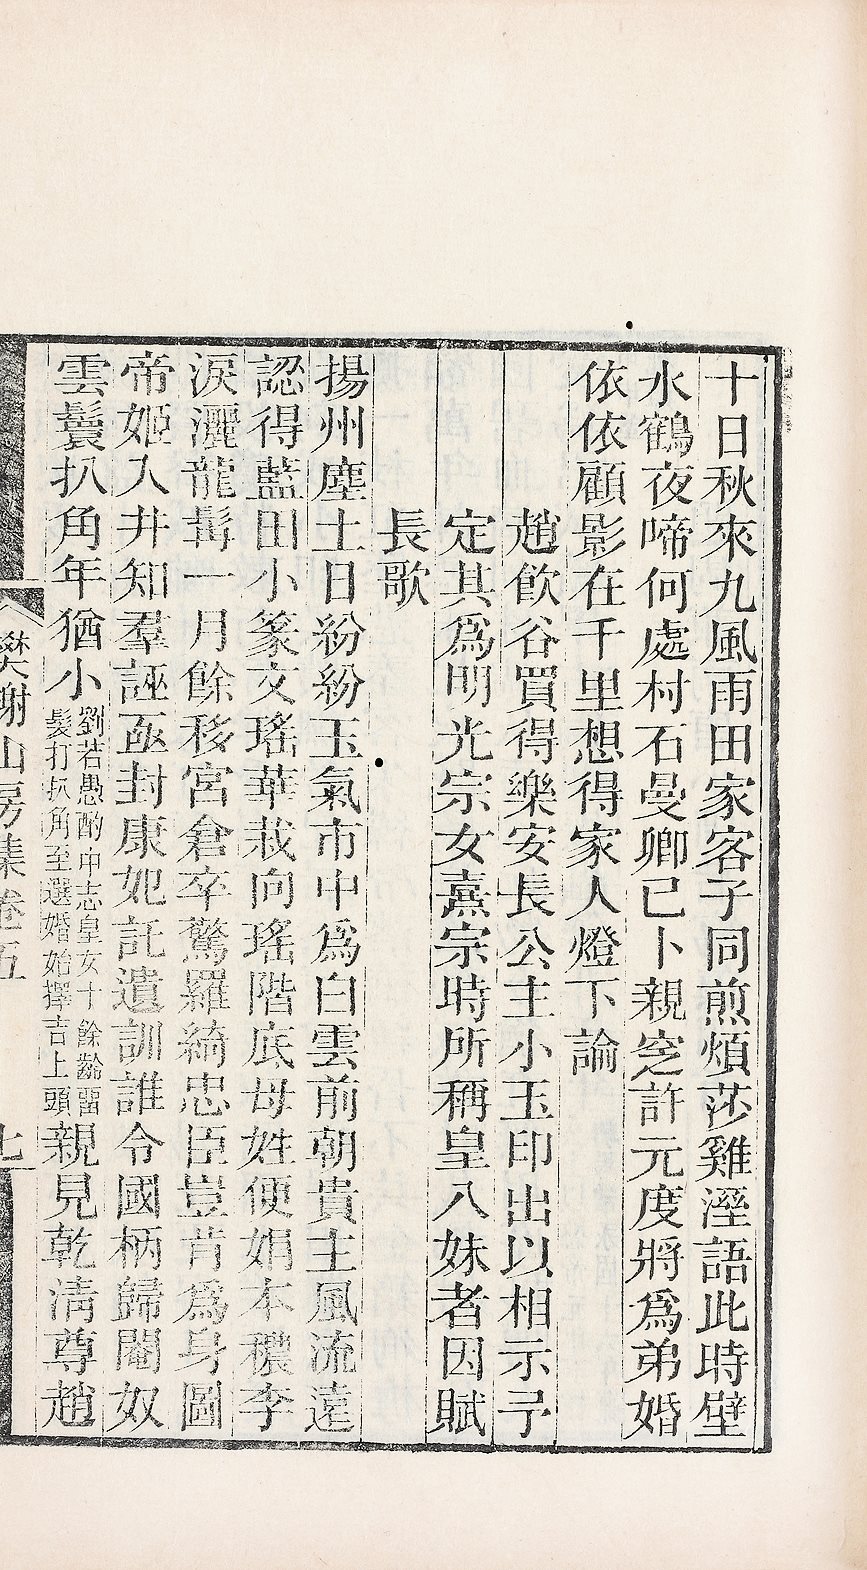 十日秋來九風雨田家客子同煎煩莎雞溼語此時壁
水鶴夜啼何處村石曼卿已卜親窆許元度將爲弟婚
依依顧影在千里想得家人燈下論
趙飲谷買得樂安長公主小玉印出以相示予
定其爲明光宗女熹宗時所稱皇八妹者因賦
長歌
揚州塵土日紛紛玉氣市中爲白雲前朝貴主風流遠
認得藍田小篆文瑤華栽向瑤階底母姓便娟本穠李
淚灑龍髯一月餘移宮倉卒驚羅綺忠臣豈肯爲身圖
帝姬入井知羣誣亟封康妃託遺訓誰令國柄歸閹奴
雲鬟扒角年猶小劉若愚酌中志皇女十餘齡留髮打扒角至選婚始擇吉上頭親見乾清尊趙
樊榭山房集卷五
七